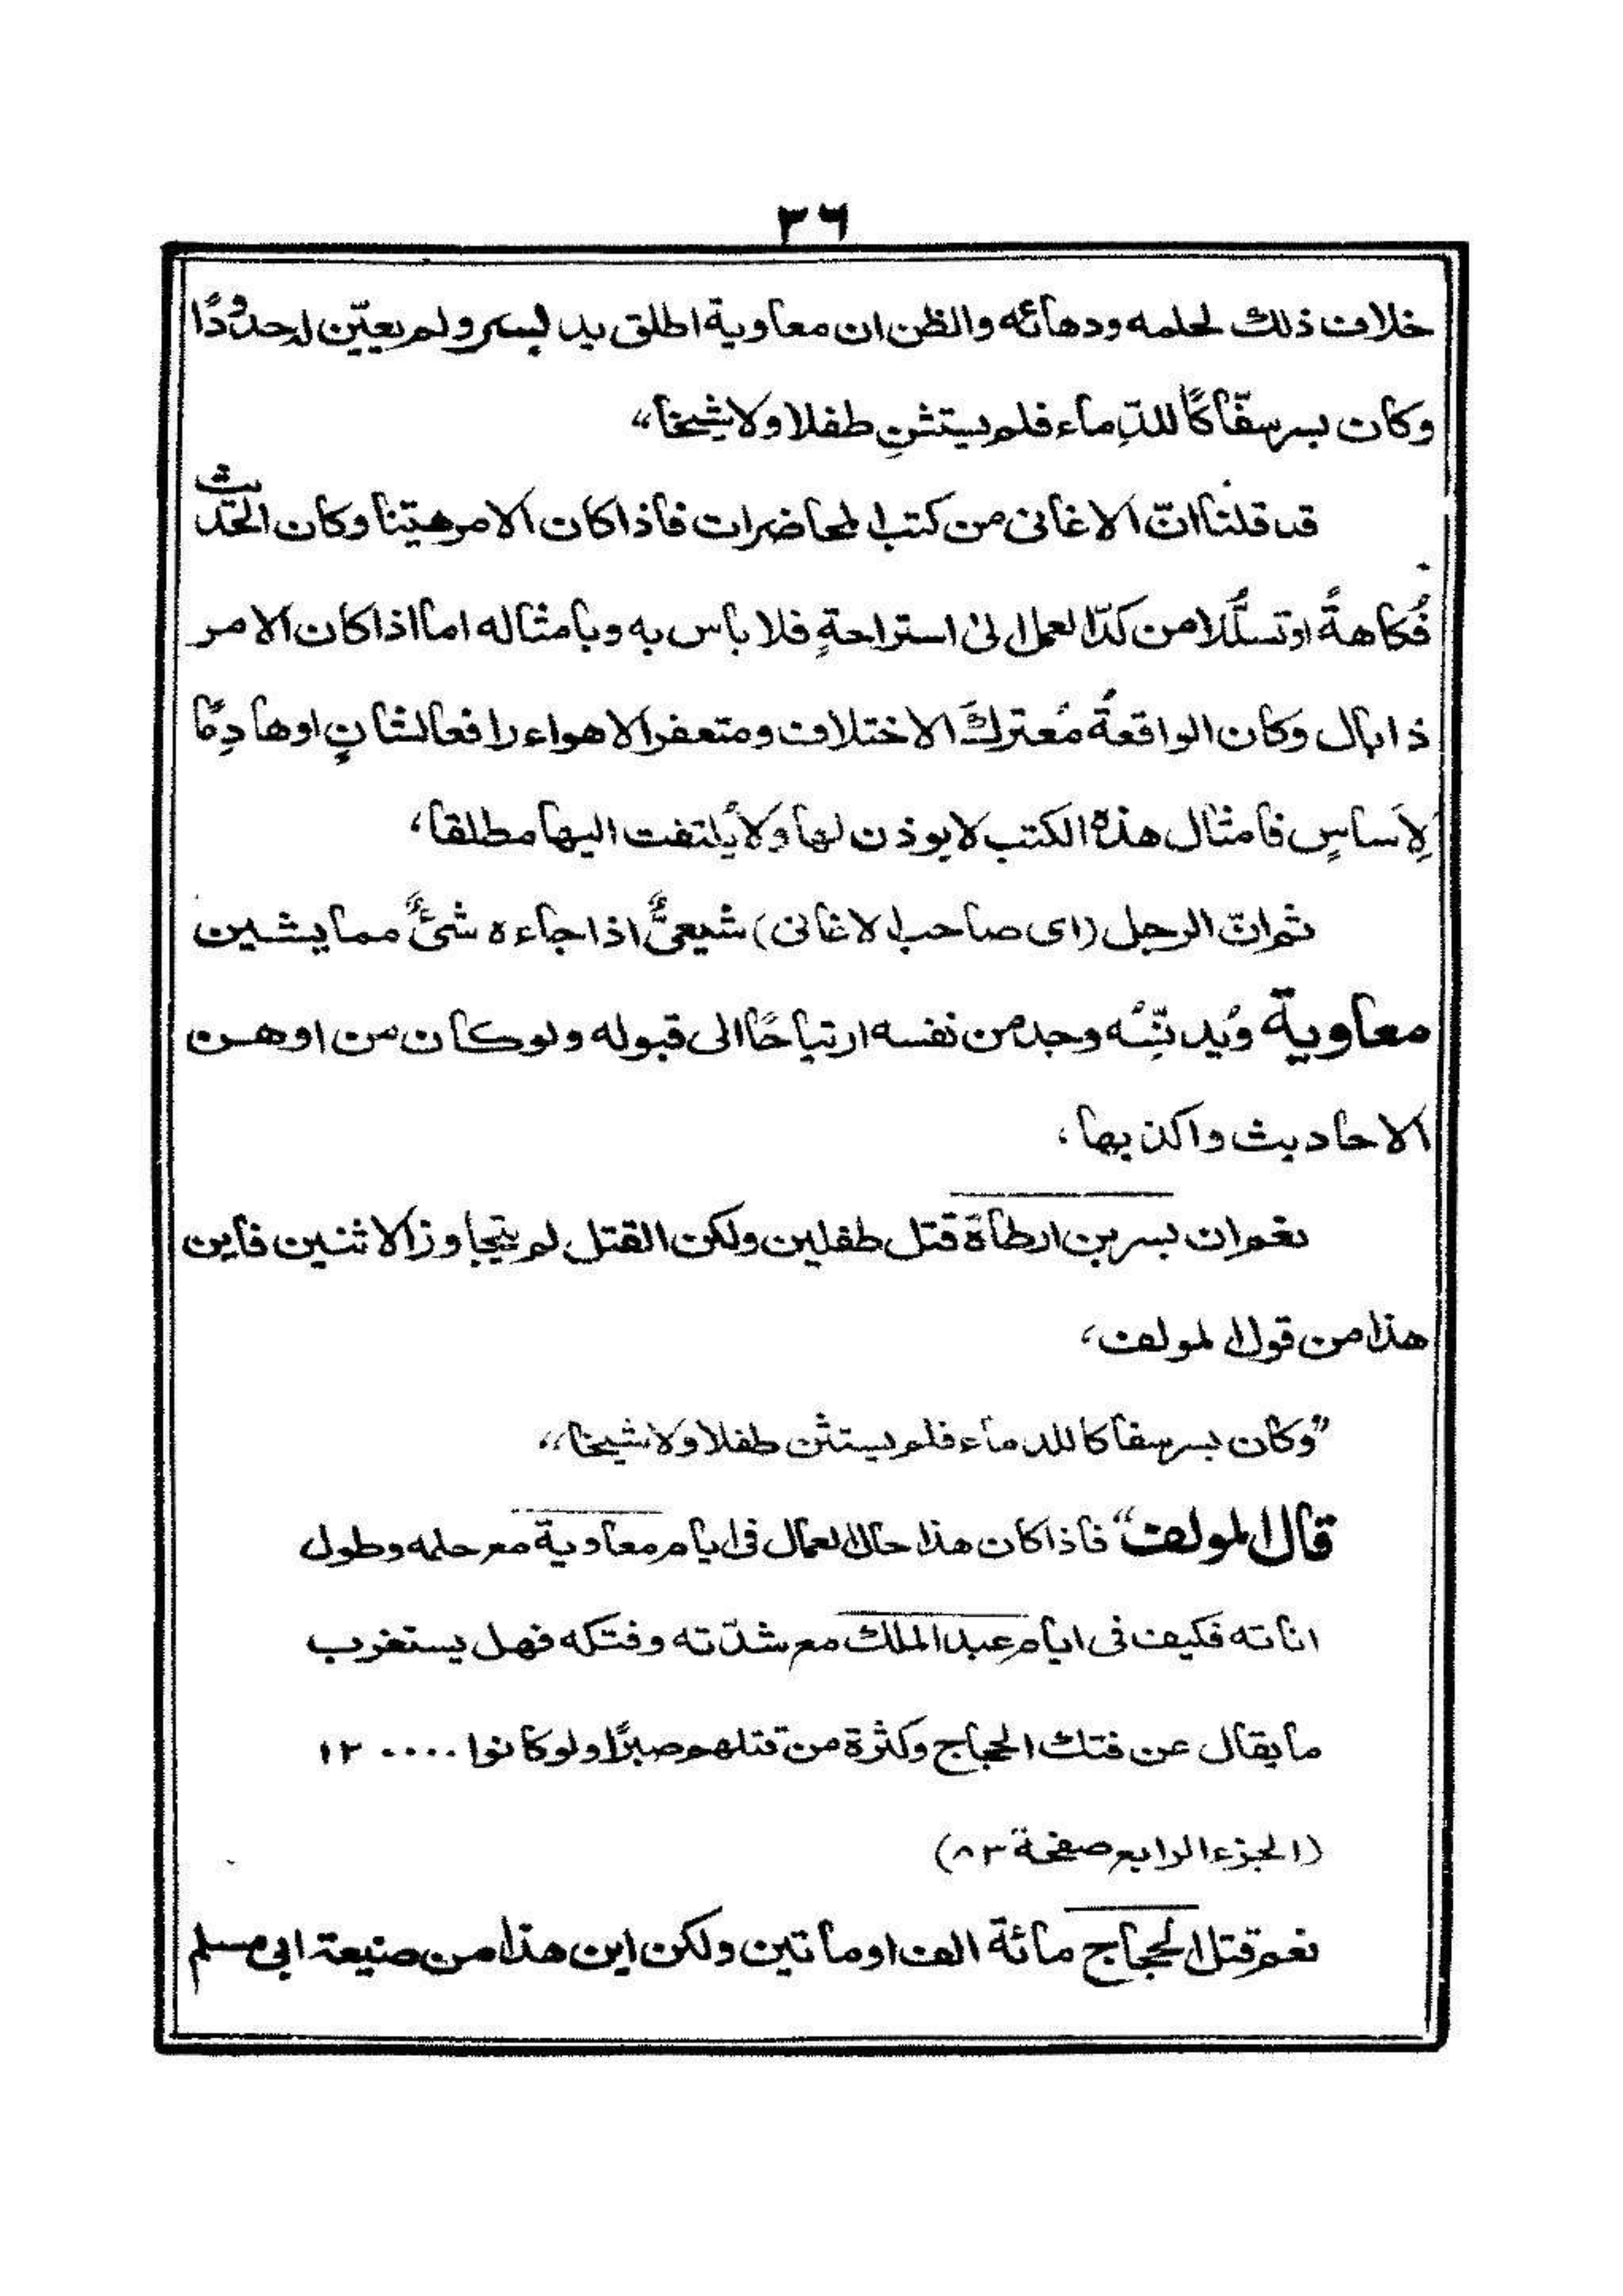 ٣٦
خلاف ذلك لحلمه ودهائه والظن ان معاوية اطلق يد بسر ولم يعيّن له حدودًا
وكان بسر سفّاكًا للدِّماء فلم يستثنِ طفلا ولا شيخا“
قد قلنا انّ الاغانى من كتب المحاضرات فاذا كان الامر هيّنا وكان الحَدَث
فُكاهةً او تسلّلا من كدّ العمل الى استراحةٍ فلا باس به وبامثاله اما اذا كان الامر
ذا بال وكان الواقعةُ مُعتركَ الاختلاف ومتعفر الاهواء رافعا لشانٍ او هادِمًا
لِاَساسٍ فامثال هذه الكتب لا يوذن لها ولا يُلتفت اليها مطلقا،
ثم انّ الرجل (اى صاحب الاغانى) شيعىٌّ اذا جاءه شئٌ مما يشين
معاوية ويُدنّسُه وجد من نفسه ارتياحًا الى قبوله ولو كان من اوهن
الاحاديث واكذبها،
نعم ان بسر بن ارطاة قتل طفلين ولكن القتل لم يتجاوز الاثنين فاين
هذا من قول المولف،
”وكان بسر سفاكا للدماء فلم يستثن طفلا ولا شيخا“
قال المولف“ فاذا كان هذا حال العمال فى ايام معاوية مع حلمه وطول
اناته فكيف فى ايام عبد الملك مع شدّته وفتكه فهل يستغرب
ما يقال عن فتك الحجاج وكثرة من قتلهم صبرًا ولو كانوا ١٢٠٠٠٠
(الجزء الرابع صفحة ٨٣)
نعم قتل الحجاج مائة الف او ماتين ولكن اين هذا من صنيعة ابى مسلم